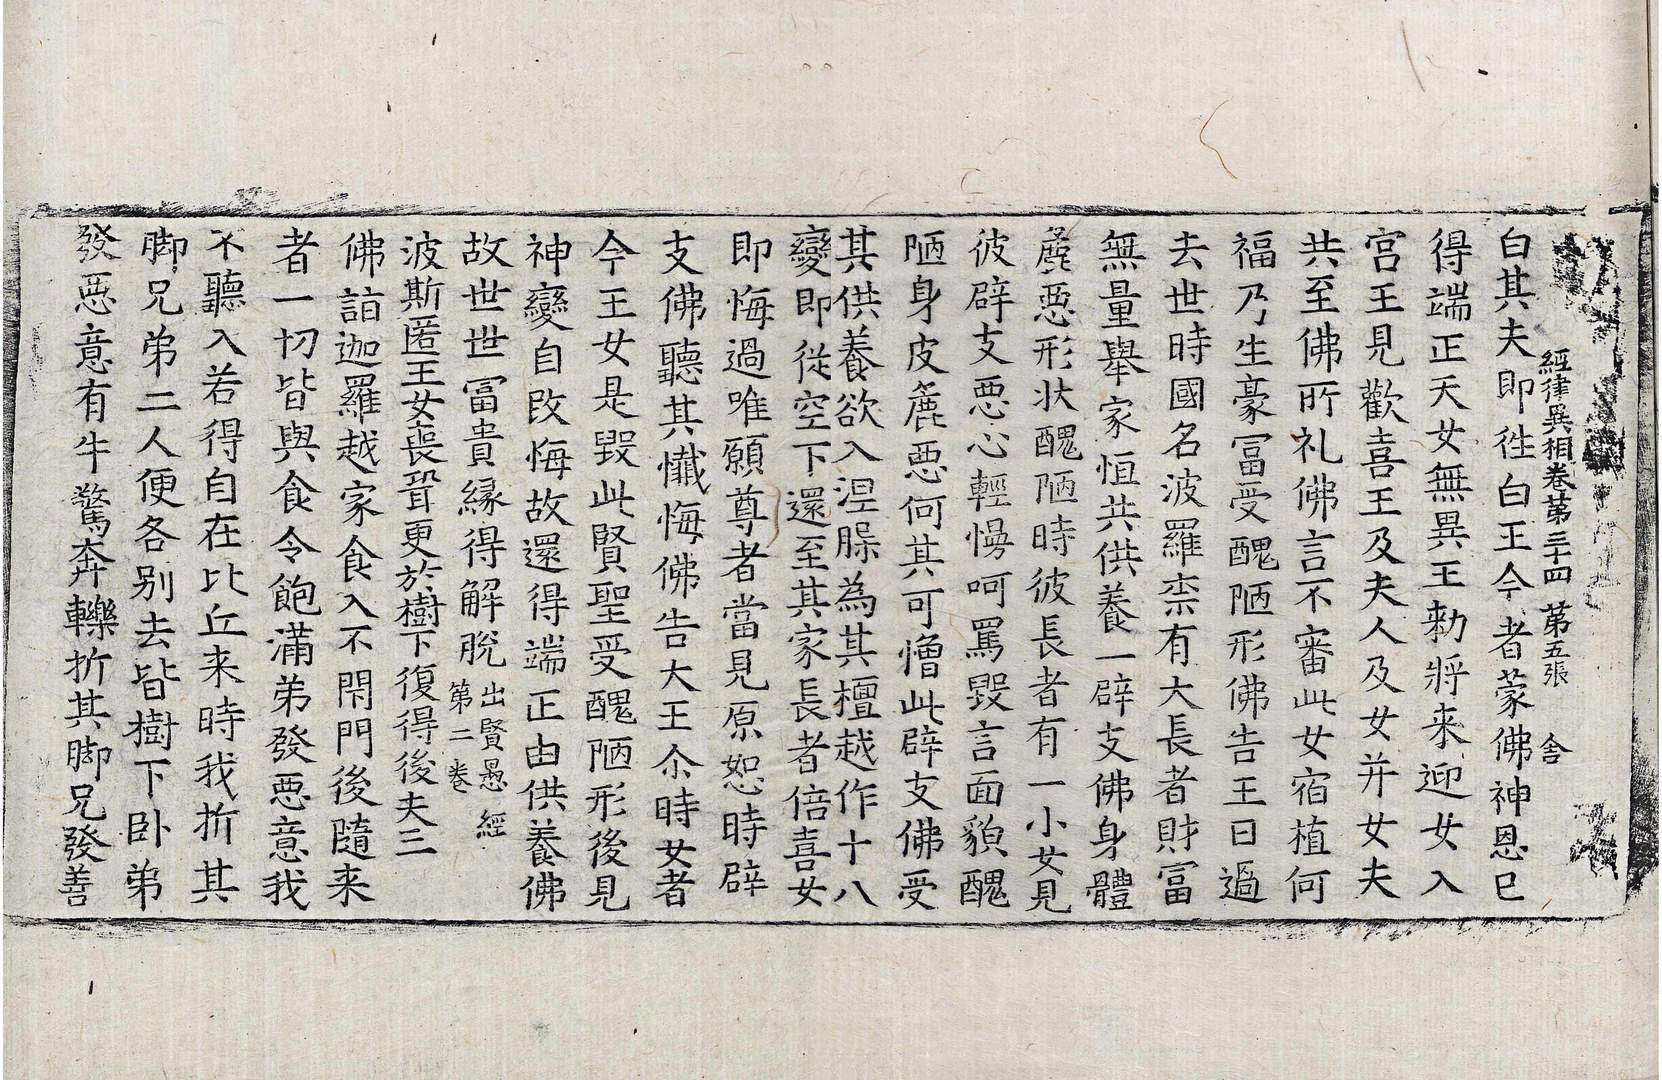 經律異相卷第三十四 第五張 舍
白其夫即徃白王今者蒙佛神恩已
得端正天女無異王勑將来迎女入
宮王見歡喜王及夫人及女并女夫
共至佛所礼佛言不審此女宿植何
福乃生豪冨受醜陋形佛告王曰過
去世時國名波羅柰有大長者財冨
無量舉家恒共供養一辟支佛身體
麁惡形状醜陋時彼長者有一小女見
彼辟支惡心輕慢呵罵毀言面貌醜
陋身皮麁惡何其可憎此辟支佛受
其供養欲入涅槃為其檀越作十八
變即從空下還至其家長者倍喜女
即悔過唯願尊者當見原恕時辟
支佛聽其懺悔佛告大王尒時女者
今王女是毀此賢聖受醜陋形後見
神變自改悔故還得端正由供養佛
故世世冨貴緣得解脫 出賢愚經第二卷
波斯匿王女喪暜更於樹下復得後夫三
佛詣迦羅越家食入不閇門後隨来
者一切皆與食令飽滿弟發惡意我
不聽入若得自在比丘来時我折其
脚兄弟二人便各別去皆樹下卧弟
發惡意有牛驚奔轢折其脚兄發善